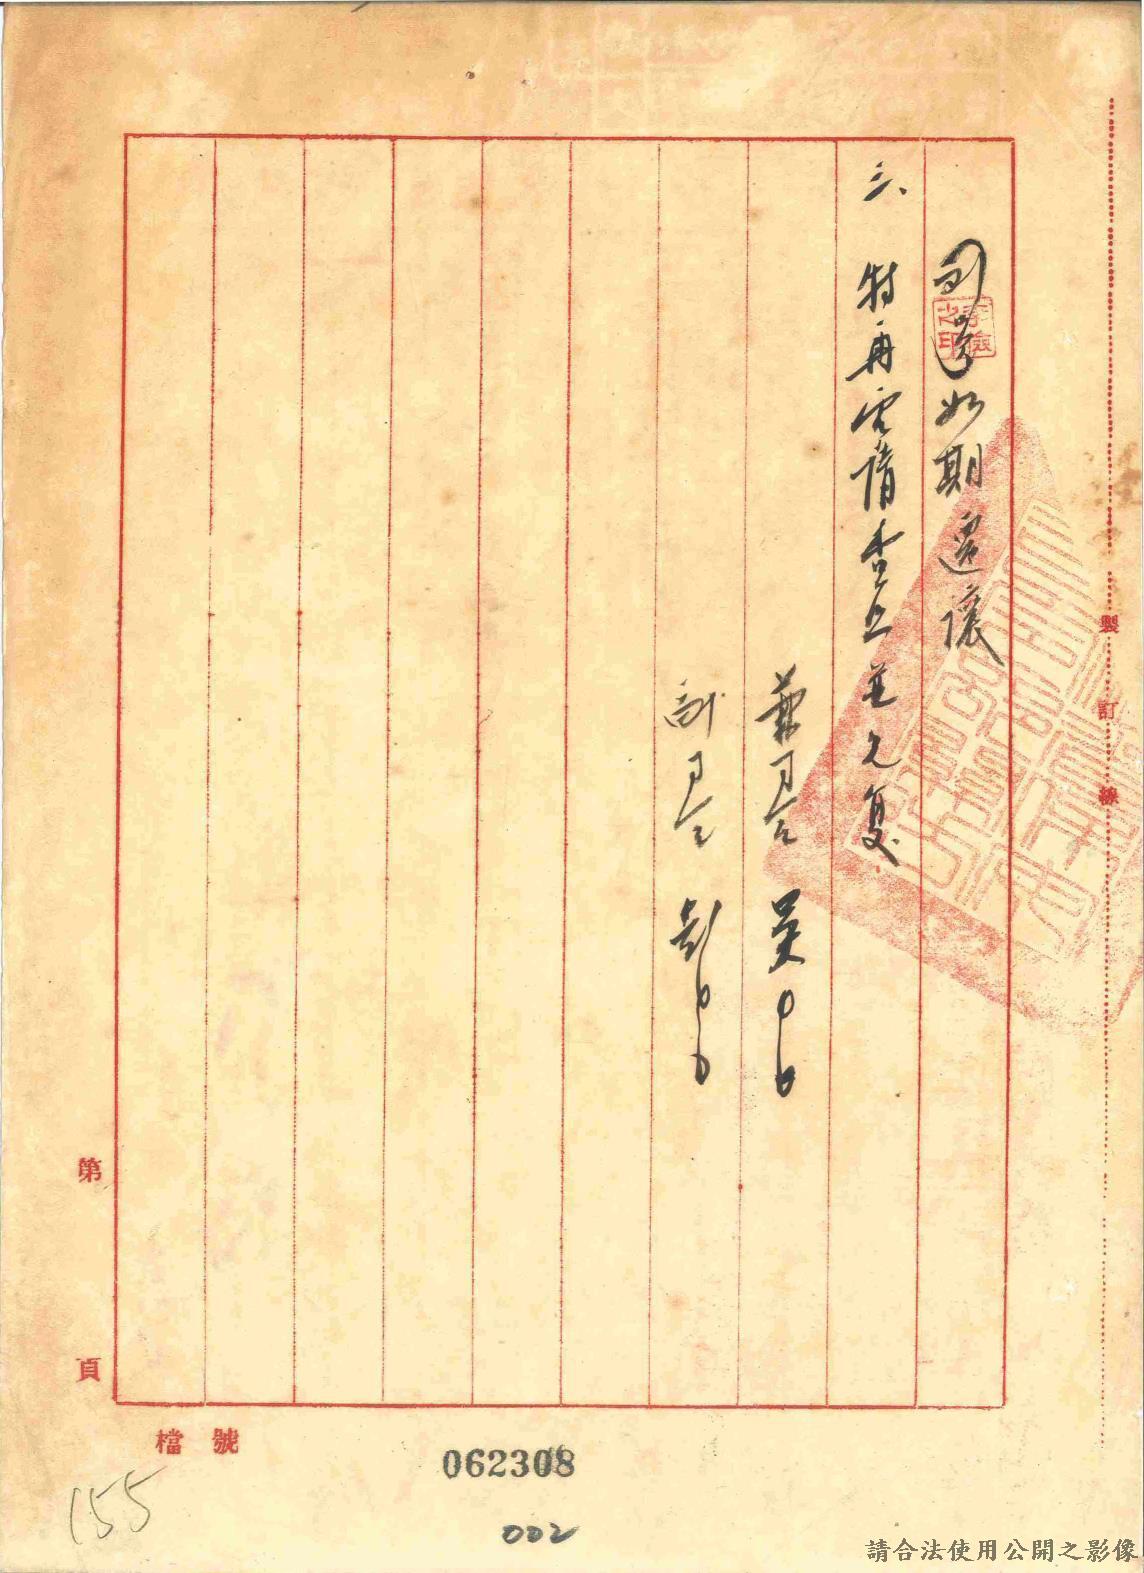 如期遷讓
三、特再電請查照並見復
兼司令 吳
副司令 彭
製訂線
第 頁
檔號
062308
002
155
請合法使用公開之影像